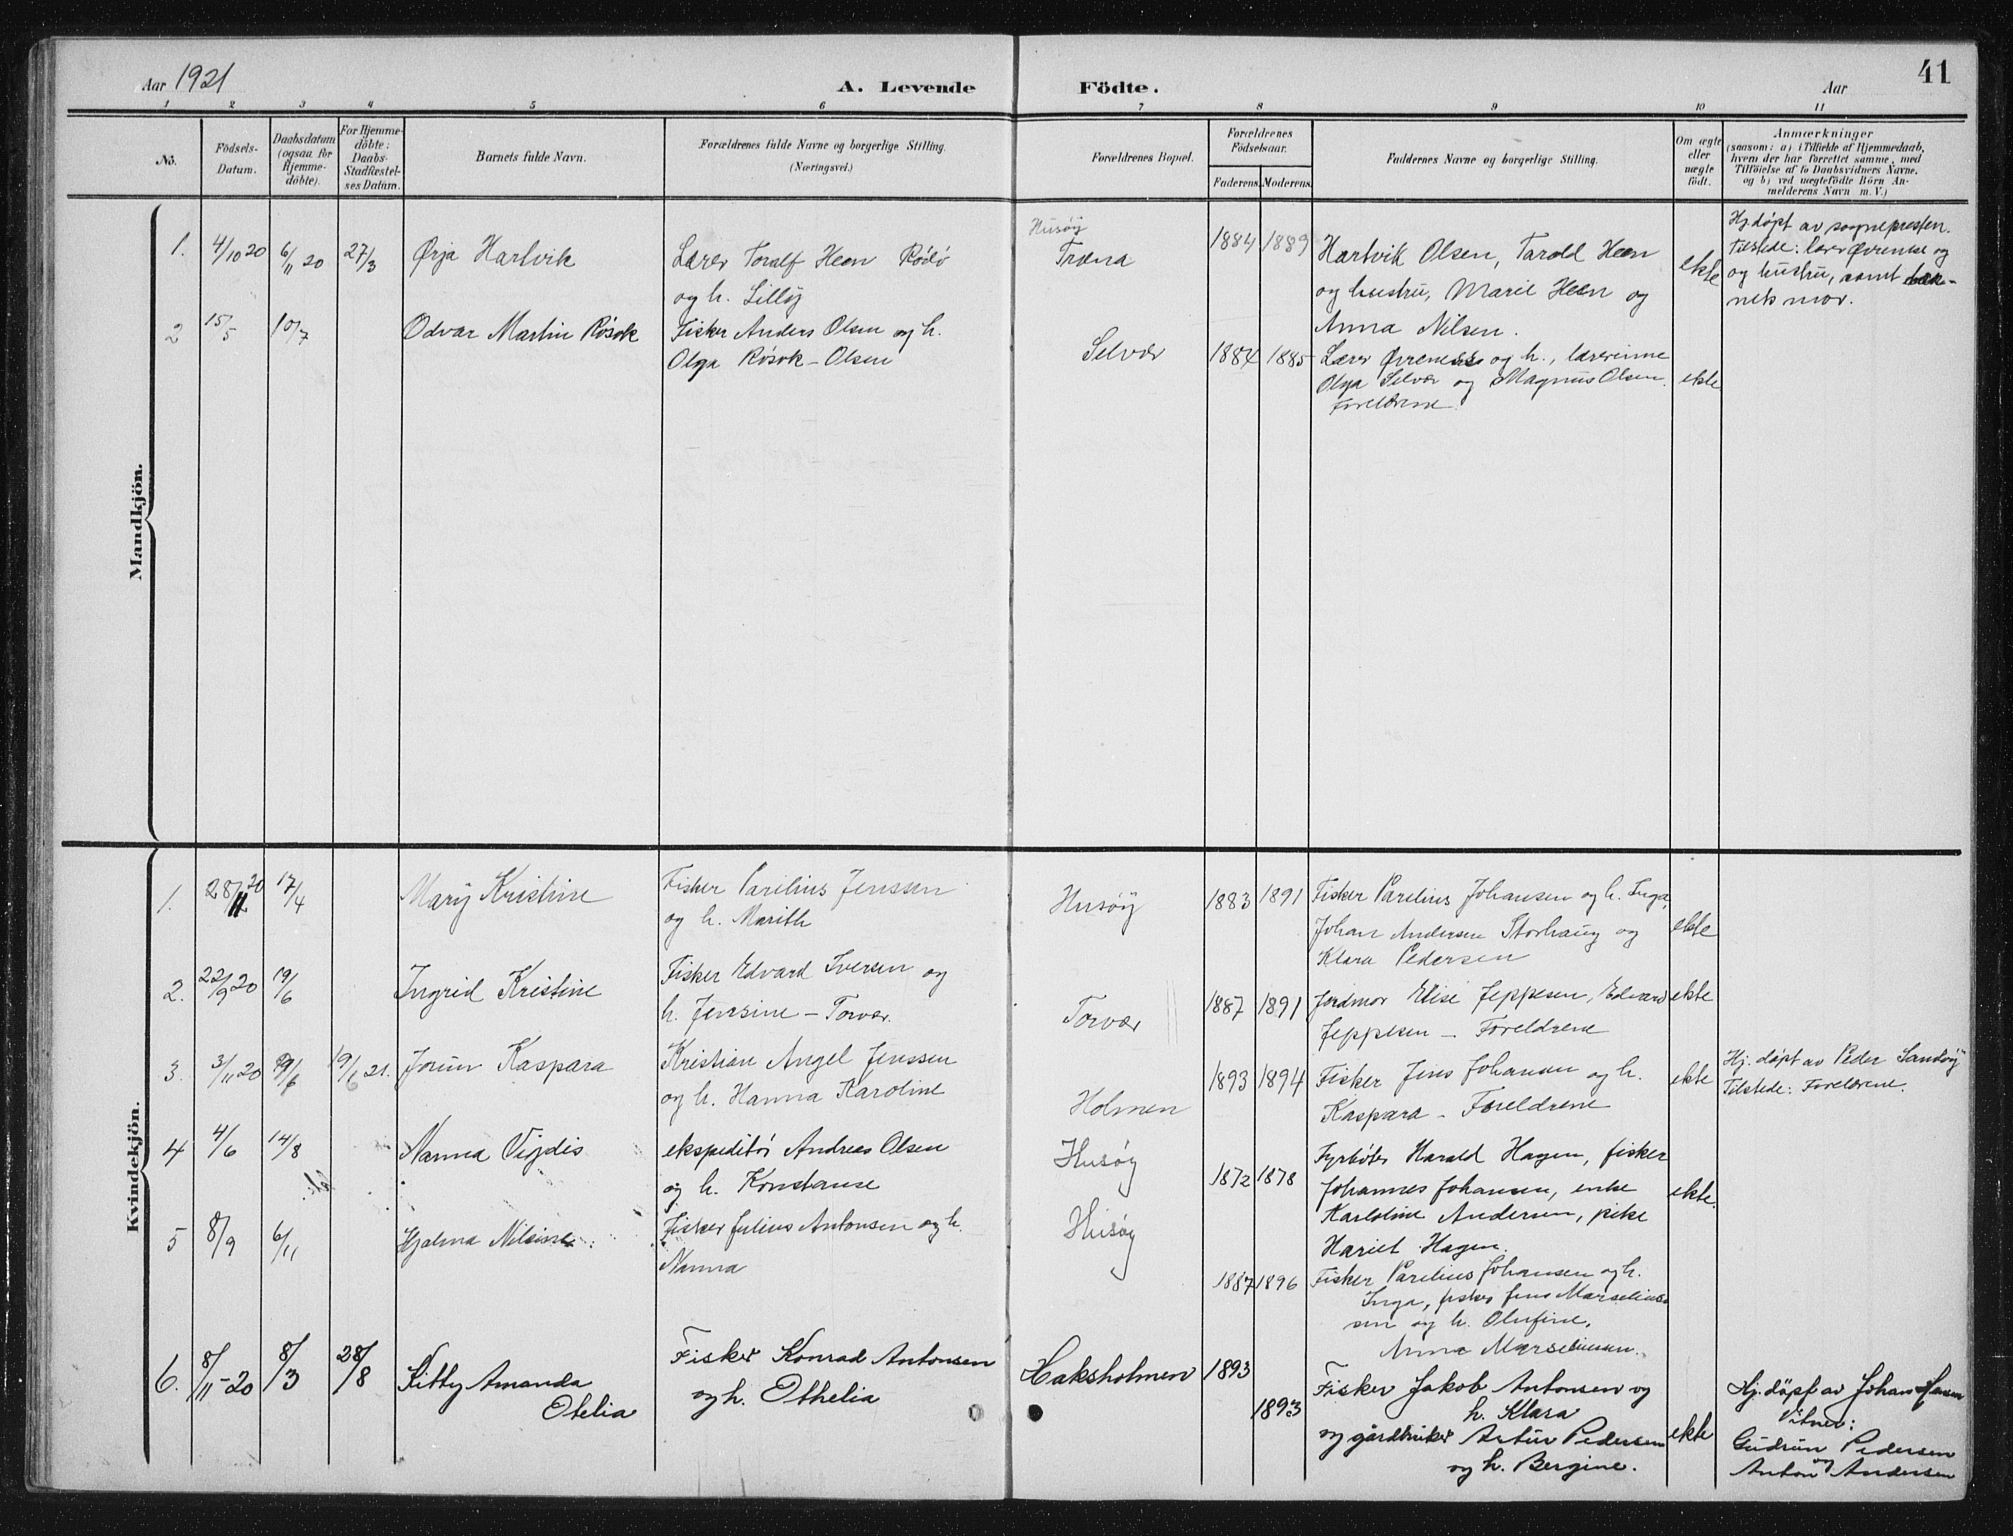 Aar 1921
A. Levende
Födte.
Aar
41
1 2 3 4 5 6 7 8 9 10 11
No.
Födsels-
Datum.
Daabsdatum
(ogsaa for
Hjemme-
döbte).
For Hjemme-
döbte:
Daabs-
Stadfæstel-
ses Datum.
Barnets fulde Navn.
Forældrenes fulde Navne og borgerlige Stilling.
(Næringsvei.)
Forældrenes Bopæl.
Forældrenes
Födselsaar.
Faderens. Moderens.
Faddernes Navne og borgerlige Stilling.
Om ægte
eller
uægte
födt.
Anmærkninger
(saasom: a) i Tilfælde af Hjemmedaab,
hvem der har forrettet samme, med
Tilföielse af to Daabsvidners Navne,
og b) ved uægtefödte Börn An-
melderens Navn m. V.)
Mandkjön.
1. 4/10 20 6/11 20 27/3 Ørja Hartvik
Lærer Toralf Heen Rödö
og h. Lilly
Husøy
Træna
1884 1889
Hartvik Olsen, Tarald Heen
og hustru, Marie Heen og
Anna Nilsen.
ekte
Hj.døpt av sogneprosten.
Tilstede: lærer Øvrenese og
og hustru, samt bar-
nets mor.
2 15/5 10/7 Odvar Martin Røsok
Fisker Anders Olsen og h.
Olga Røsok-Olsen
Selvær
1884 1885
Lærer Øvreness og h., lærerinne
Olga Selvær og Magnus Olsen.
Foreldrene.
ekte
Kvindekjön.
1. 28/11 20 17/4 Mary Kristine
Fisker Parelius Jenssen
og h. Marith
Husøy
1883 1891
Fisker Parelius Johansen og h. Inga,
Johan Andersen Storhaug og
Klara Pedersen
ekte
2. 22/9 20 19/6 Ingrid Kristine
Fisker Edvard Iversen og
h. Jensine - Torvær.
Torvær
1887 1891
Jordmor Elise Jeppesen, Edvard
Jeppesen - Foreldrene
ekte
3. 3/11 20 19/6 19/6 21. Jorun Kaspara
Kristian Angel Jenssen
og h. Hanna Karoline
Holmen
1893 1894
Fisker Jens Johansen og h.
Kaspara - Foreldrene
ekte
Hj. døpt av Peder Sandøy
Tilstede: Forelærene.
4 4/6 14/8 Nanna Vigdis
ekspeditør Andreas Olsen
og h. Konstanse
Husøy
1872 1878
Fyrbøter Harald Hagen, fisker
Johannes Johansen, enke
Karloline Andersen, pike
Hariet Hagen.
ekte.
5 8/9 6/11 Hjalma Nilsine
Fisker Julius Antonsen og h.
Nanna
Husøy
1887 1896
Fisker Parelius Johansen og h.
Inga, fisker Jens Marselius-
sen og h. Olufine,
Anna Marseliussen.
6. 8/11-20 8/3 28/8 Kitty Amanda
Otelia
Fisker Konrad Antonsen
og h. Othelia
Haksholmen
1893
1893
Fisker Jakob Antonsen og
h. Klara
og gårdbruker Artur Pedersen
og h. Bergine.
ekte
Hj. døpt av Johan Hansen
Vitner:
Gudrun Pedersen
og
Anton Andersen